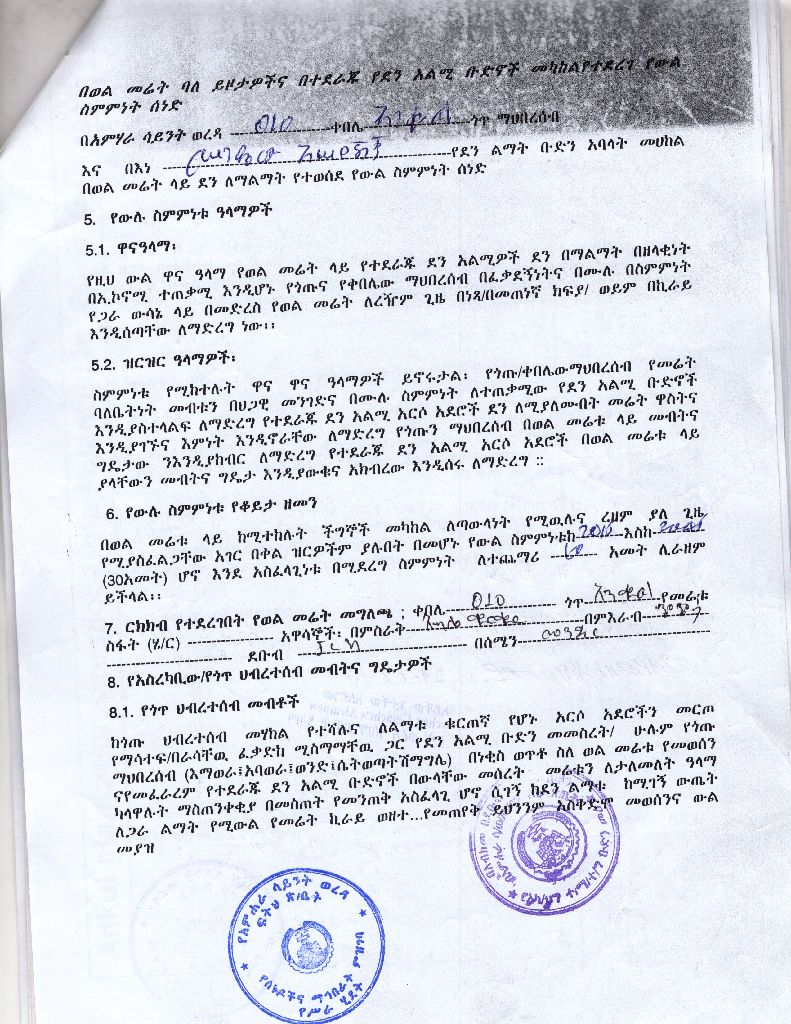 በወል መሬት ባለ ይዞታዎችና በተደራጁ የደን አልሚ ቡድኖች መካከልየተደረገ የውል
ስምምነት ሰነድ
በአምሃራ ሳይንት ወረዳ ----------- 010 -----------ቀበሌ-----------ጎጥ ማህበረሰብ
እና በእነ -----------የደን ልማት ቡድን አባላት መሀከል
በወል መሬት ላይ ደን ለማልማት የተወሰደ የውል ስምምነት ሰነድ
5. የውሉ ስምምነቱ ዓላማዎች
5.1. ዋናዓላማ፡
የዚህ ውል ዋና ዓላማ የወል መሬት ላይ የተደራጁ ደን አልሚዎች ደን በማልማት በዘላቂነት
በኢኮኖሚ ተጠቃሚ እንዲሆኑ የጎጡና የቀበሌው ማህበረሰብ በፈቃደኝነትና በሙሉ በስምምነት
የጋራ ውሳኔ ላይ በመድረስ የወል መሬት ለረዥም ጊዜ በነጻ/በመጠነኛ ክፍያ/ ወይም በኪራይ
እንዲሰጣቸው ለማድረግ ነው፡፡
5.2. ዝርዝር ዓላማዎች፡
ስምምነቱ የሚከተሉት ዋና ዋና ዓላማዎች ይኖሩታል፤ የጎጡ/ቀበሌውማህበረሰብ የመሬት
ባለቤትነት መብቱን በህጋዊ መንገድና በሙሉ ስምምነት ለተጠቃሚው የደን አልሚ ቡድኖች
እንዲያስተላልፍ ለማድረግ የተደራጁ ደን አልሚ አርሶ አደሮች ደን ለሚያለሙበት መሬት ዋስትና
እንዲያገኙና እምነት እንዲኖራቸው ለማድረግ የጎጡን ማህበረሰብ በወል መሬቱ ላይ መብትና
ግዴታው ንእንዲያከብር ለማድረግ የተደራጁ ደን አልሚ አርሶ አደሮች በወል መሬቱ ላይ
ያላቸውን መብትና ግዴታ እንዲያውቁና አክብረው እንዲሰሩ ለማድረግ ::
6. የውሉ ስምምነቱ የቆይታ ዘመን
በወል መሬቱ ላይ ከሚተከሉት ችግኞች መካከል ለጣውላነት የሚዉሉና ረዘም ያለ ጊዜ
የሚያስፈልጋቸው አገር በቀል ዝርዎችም ያሉበት በመሆኑ የውል ስምምነቱከ-----------እስከ-----------
(30አመት) ሆኖ እንደ አስፈላጊነቱ በሚደረግ ስምምነት ለተጨማሪ ----------- አመት ሊራዘም
ይችላል፡፡
7. ርክክብ የተደረገበት የወል መሬት መግለጫ ; ቀበሌ----------- 010 ----------- ጎጥ-----------የመሬቱ
ስፋት (ሄ/ር) ----------- አዋሳኞች፡ በምስራቅ-----------በምእራብ-----------
----------- ደቡብ ----------- በሰሜን-----------
8. የአስረካቢው/የጎጥ ህብረተሰብ መብትና ግዴታዎች
8.1. የጎጥ ህብረተሰብ መብቶች
ከጎጡ ህብረተሰብ መሃከል የተሻሉና ለልማቱ ቁርጠኛ የሆኑ አርሶ አደሮችን መርጦ
የማሳተፍ/በራሳቸዉ ፈቃድከ ሚስማማቸዉ ጋር የደን አልሚ ቡድን መመስረት/ ሁሉም የጎጡ
ማህበረሰብ (እማወራ፤አባወራ፤ወንድ፤ሴትወጣትሽማግሌ) በነቂስ ወጥቶ ስለ ወል መሬቱ የመወሰን
ናየመፈራረም የተደራጁ ደን አልሚ ቡድኖች በውላቸው መሰረት መሬቱን ለታለመለት ዓላማ
ካላዋሉት ማስጠንቀቂያ በመስጠት የመንጠቅ አስፈላጊ ሆኖ ሲገኝ ከደን ልማቱ ከሚገኝ ውጤት
ለጋራ ልማት የሚውል የመሬት ኪራይ ወዘተ...የመጠየቅ ይህንንም አስቀድሞ መወሰንና ውል
መያዝ
የአምሐራ ሳይንት ወረዳ
ፍትህ ጽ/ቤት
የሰነዶችና ማኅበራት ምዝገባ
የሥራ ሂደት